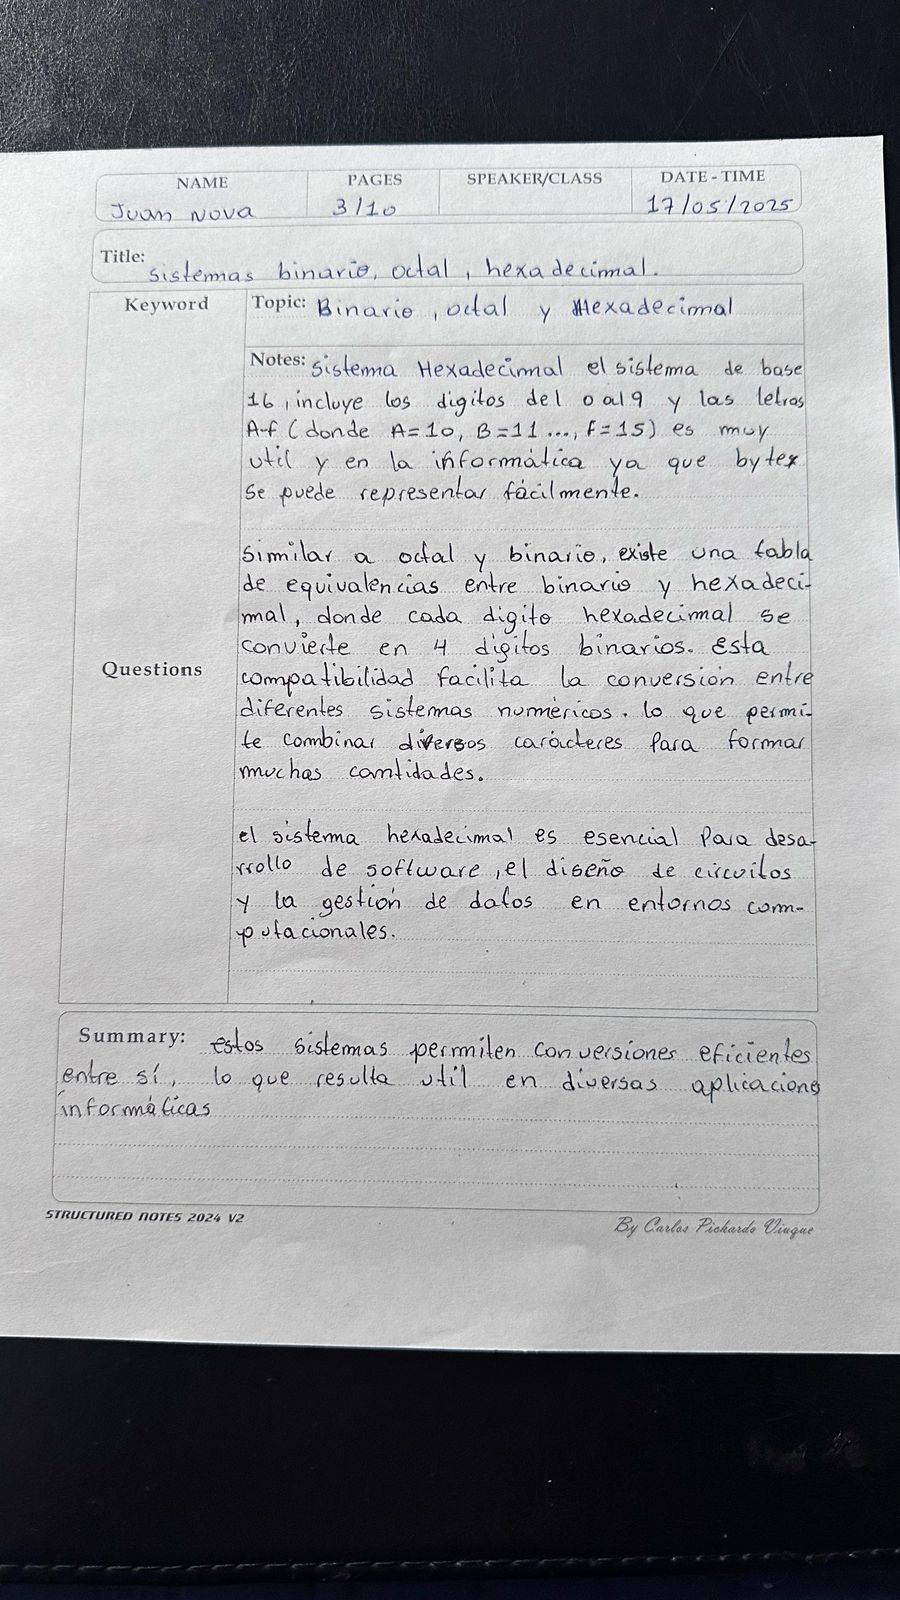 NAME PAGES SPEAKER/CLASS DATE - TIME
Juan Nova 3/10 17/05/2025
Title: sistemas binario, octal, hexadecimal.
Keyword Topic: Binario, octal y Hexadecimal
Notes: Sistema Hexadecimal el sistema de base
16, incluye los digitos del 0 al 9 y las letras
A-f (donde A=10, B=11 ..., f=15) es muy
util y en la informática ya que bytes
se puede representar fácilmente.
Similar a octal y binario, existe una tabla
de equivalencias entre binario y hexadeci-
mal, donde cada digito hexadecimal se
convierte en 4 digitos binarios. Esta
Questions
compatibilidad facilita la conversión entre
diferentes sistemas numéricos. lo que permi-
te combinar diversos carácteres Para formar
muchas cantidades.
el sistema hexadecimal es esencial Para desa-
rrollo de software, el diseño de circuitos
y la gestión de datos en entornos com-
putacionales.
Summary: estos sistemas permiten conversiones eficientes
entre sí, lo que resulta util en diversas aplicaciones
informáticas
STRUCTURED NOTES 2024 V2
By Carlos Pichardo Viuque